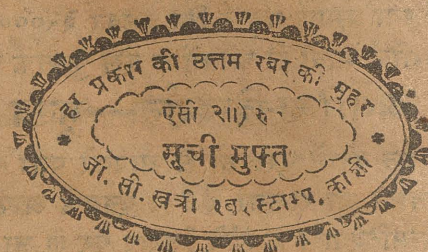 हर प्रकार की उत्तम रबर की मुहर
ऐसी २॥) रु॰
सूची मुफ्त
जी. सी. खत्री रबर स्टाम्प, काशी